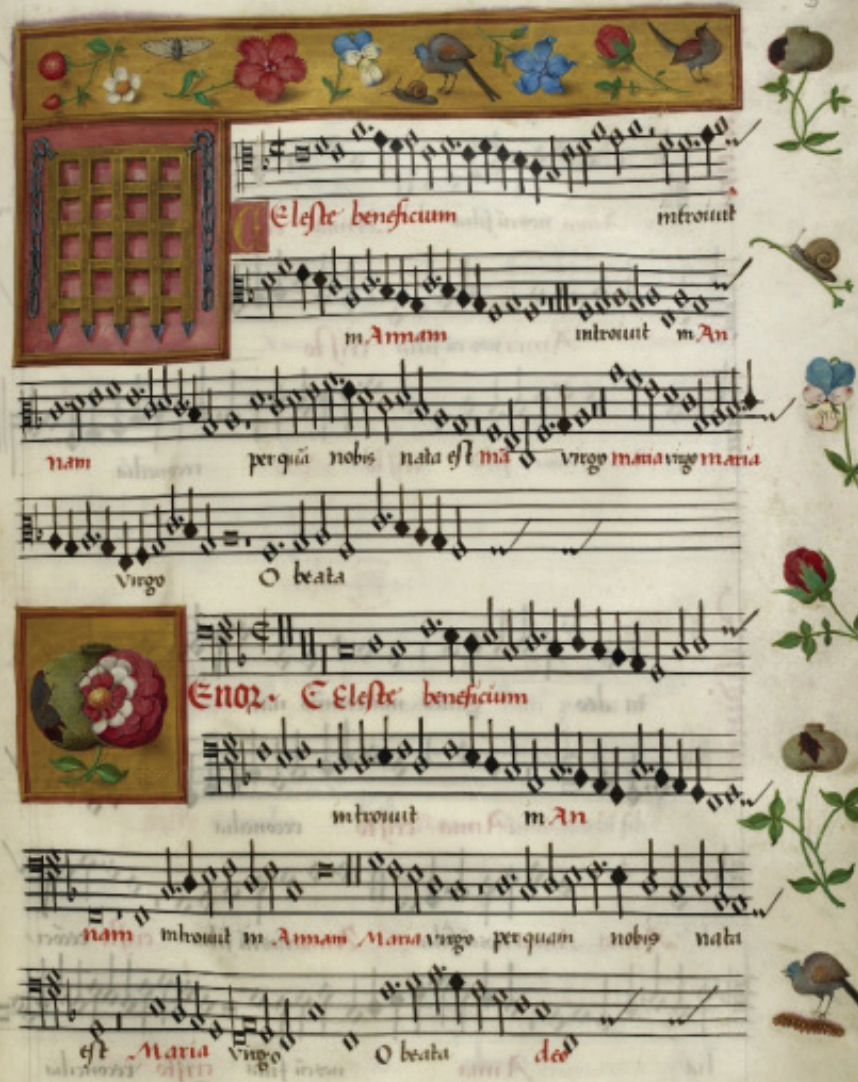 CEleste beneficium introiuit
in Annam introiuit in An
nam per quā nobis nata est mā virgo maria virgo maria
virgo O beata
Enor. CEleste beneficium
introiuit in An
nam introiuit in Annam Maria virgo per quam nobis nata
est Maria virgo O beata deo